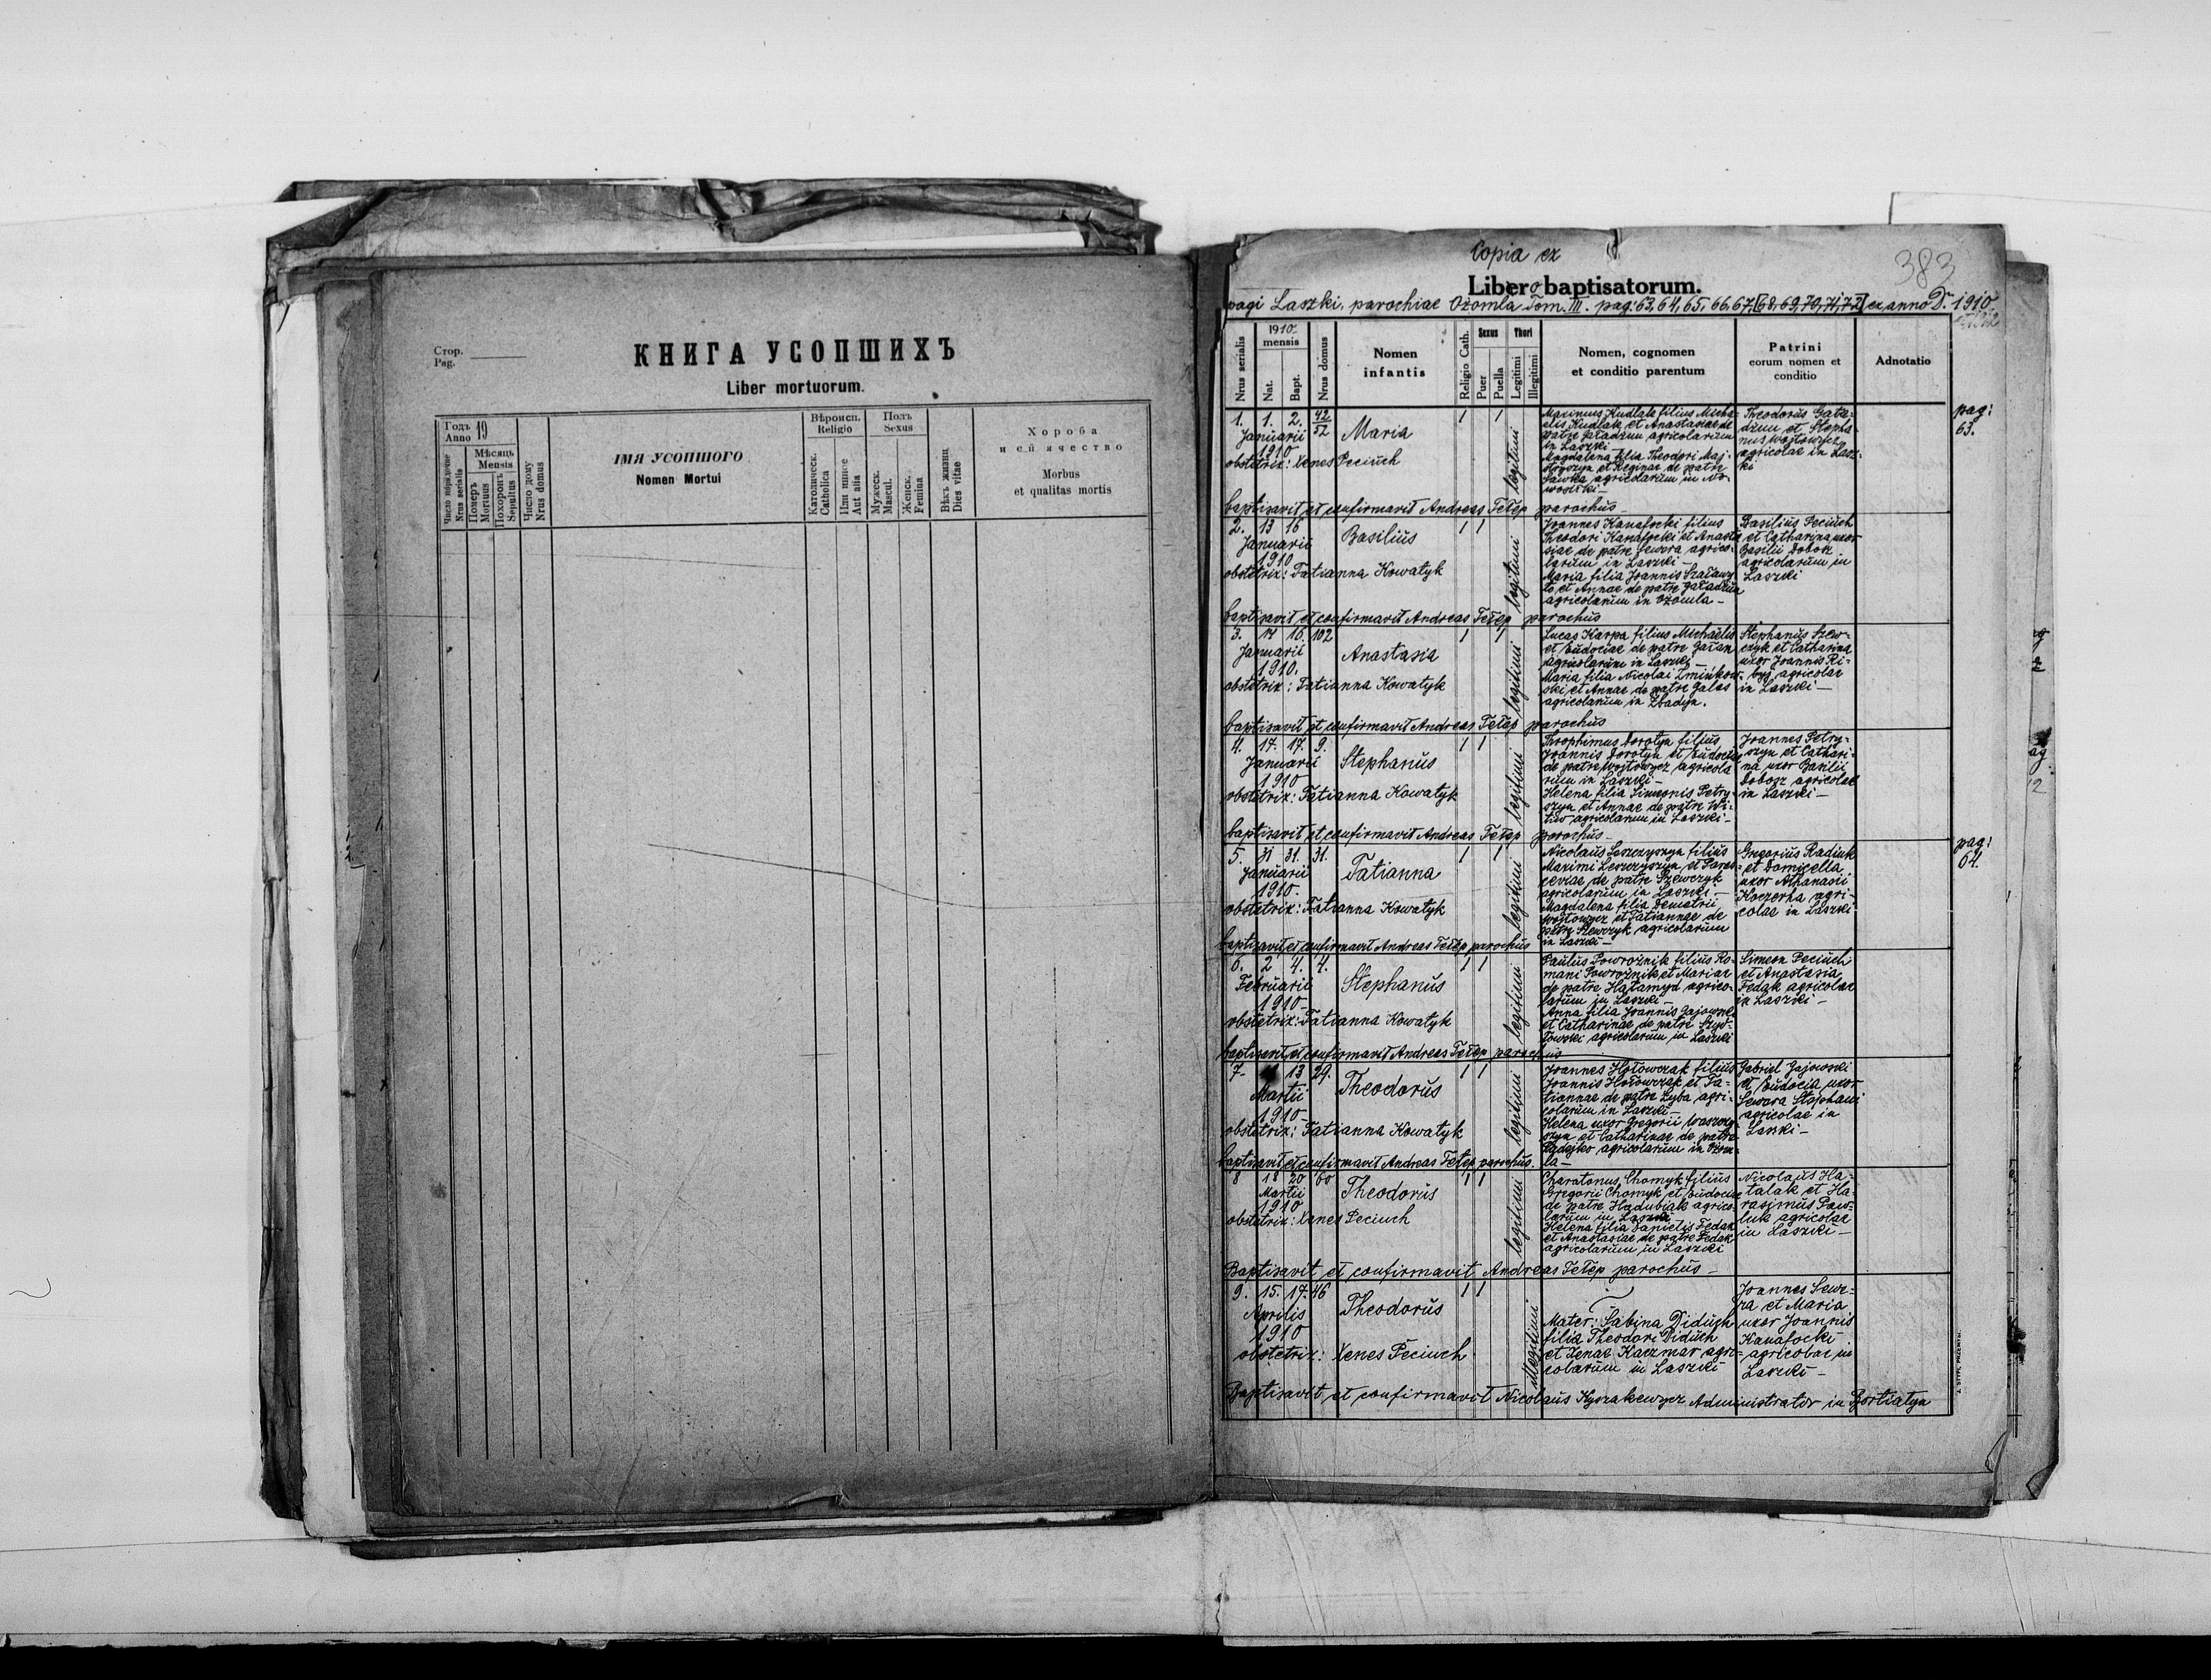 Стор.
Pag.
КНИГА УСОПШИХЪ
Liber mortuorum.
Годъ
Anno 19
Мѣсяць
Mensis
Число порядкове
Nrus serialis
Померъ
Mortuus
Похоронъ
Sepultus
Число дому
Nrus domus
ІМЯ УСОПШОГО
Nomen Mortui
Вѣроисп.
Religio
Католическ.
Catholica
Или инное
Aut alia
Полъ
Sexus
Мужеск.
Mascul.
Женск.
Femina
Вѣкъ жизни
Dies vitae
Хороба
и єй ячество
Morbus
et qualitas mortis
Copia ex
383
Libero baptisatorum.
pagi Laszki, parochiae Ożomla Tom. III. pag: 63, 64, 65, 66, 67, [68, 69, 70, 71, 72] ex anno D. 1910
Nrus serialis
1910
mensis
Nat.
Bapt.
Nrus domus
Nomen
infantis
Religio Cath.
Sexus
Puer
Puella
Thori
Legitimi
Illegitimi
Nomen, cognomen
et conditio parentum
Patrini
eorum nomen et
conditio
Adnotatio
pag:
63.
1. 1. 2. 42/52
Januarii
1910
Maria
1 1
legitimi
obstetrix: Xenes Peciuch
Maximus Kudlak filius Micha-
elis Kudlak et Anastasiae de
patre Gaładzun agricolarum
in Laszki
Magdalena filia Theodori Maj-
et Reginae de patre
Sawka agricolarum in No-
wosiłki
Theodorus Gała-
dzun et Stepha-
nus Wojtowycz
agricolae in Lasz-
ki
baptisavit et confirmavit Andreas Tełep parochus
2. 13 16
Januarii
1910
Basilius
1 1
legitimi
obstetrix: Tatianna Kowatyk
Joannes Kanafocki filius
Theodori Kanafocki et Anasta-
siae de patre Sewera agrico-
larum in Laszki
Maria filia Joannis Szaławy-
ło et Annae de patre Gaładzun
agricolarum in Ożomla
Basilius Peciuch
et Catharina uxor
Basilii Dobosz
agricolarum in
Laszki
baptisavit et confirmavit Andreas Tełep parochus
3. 14 16. 102
Januarii
1910.
Anastasia
1 1
legitimi
obstetrix: Tatianna Kowatyk
Lucas Karpa filius Michaelis
et Eudociae de patre Gałan
agricolarum in Laszki
Maria filia Nicolai Zminkow-
ski et Annae de patre Galas
agricolarum in Zbadyn.
Stephanus Szew-
czyk et Catharina
uxor Joannis Ri-
byj agricolae
in Laszki
baptisavit et confirmavit Andreas Tełep parochus
4. 17. 17. 9.
Januarii
1910
Stephanus
1 1
legitimi
obstetrix: Tatianna Kowatyk
Throphimus Dorotyn filius
Joannis Dorotyn et Eudociae
de patre Wojtowycz agricola-
rum in Laszki
Helena filia Simeonis Petry-
szyn et Annae de patre Wi-
tiw agricolarum in Laszki
Joannes Petry-
szyn et Cathari-
na uxor Basilii
Dobosz agricolae
in Laszki
baptisavit et confirmavit Andreas Tełep parochus
pag:
64.
5. 31 31. 31.
Januarii
1910
Tatianna
1 1
legitimi
obstetrix: Tatianna Kowatyk
Nicolaus Leszczyszyn filius
Maximi Leszczyszyn et Paras-
ceviae de patre Szewczyk
agricolarum in Laszki
Magdalena filia Demetrii
Wojtowycz et Tatiannae de
patre Szewczyk agricolarum
in Laszki
Gregorius Radiuk
et Domicella
uxor Athanasii
Koczerha agri-
colae in Laszki
baptisavit et confirmavit Andreas Tełep parochus
6. 2 4. 4.
Februarii
1910
Stephanus
1 1
legitimi
obstetrix: Tatianna Kowatyk
Paulus Powroźnik filius Ro-
mani Powroźnik et Mariae
de patre Hałamyd agrico-
larum in Laszki
Anna filia Joannis Gajowski
et Catharinae de patre Szyd-
łowski agricolarum in Laszki
Simeon Peciuch
et Anastasia
Fedak agricolae
in Laszki
baptisavit et confirmavit Andreas Tełep parochus
7. 13 29.
Martii
1910
Theodorus
1 1
legitimi
obstetrix: Tatianna Kowatyk
Joannes Hołowczak filius
Joannis Hołowczak et Ta-
tiannae de patre Zyba agri-
colarum in Laszki
Helena uxor Gregorii
et Catharinae de patre
agricolarum in Ożom-
la
Gabriel Gajowski
et Eudocia uxor
Sewera Stephani
agricolae in
Laszki
baptisavit et confirmavit Andreas Tełep parochus.
8 18 20 60
Martii
1910
Theodorus
1 1
legitimi
obstetrix: Xenes Peciuch
Charatonus Chomyk filius
Gregorii Chomyk et Eudociae
de patre Hadubiak agrico-
larum in Laszki
Helena filia Danielis Fedak
et Anastasiae de patre Fedak
agricolarum in Laszki
Nicolaus Ha-
talak et Ha-
rasimus Paw-
luk agricolae
in Laszki
Baptisavit et confirmavit Andreas Tełep parochus
9. 15. 17. 46
Aprilis
1910
Theodorus
1 1
illegitimi
obstetrix: Xenes Peciuch
Mater: Sabina Diduch
filia Theodori Diduch
et Xenae Kaczmar agri-
colarum in Laszki
Joannes Sewe-
ra et Maria
uxor Joannis
Kanafocki
agricolae in
Laszki
Baptisavit et confirmavit Nicolaus Kyszakewycz Administrator in Bortiatyn